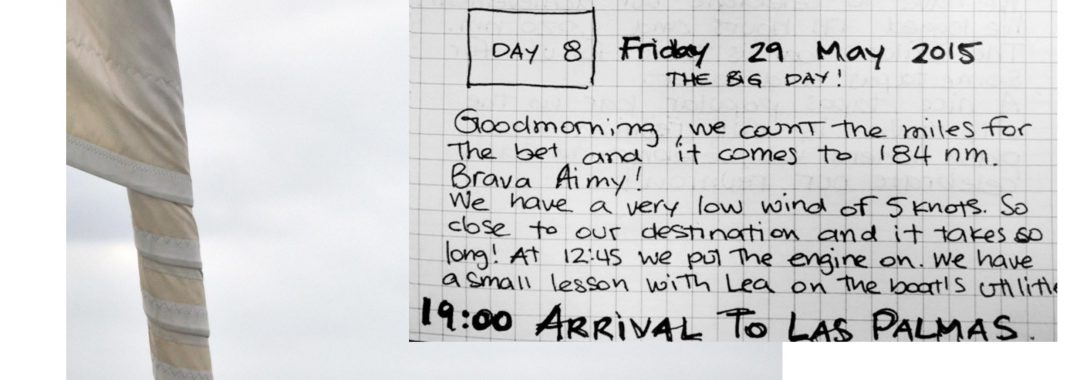 DAY 8 Friday 29 May 2015
THE BIG DAY!
Goodmorning, we count the miles for
The bet and it comes to 184 nm.
Brava Aimy!
We have a very low wind of 5 knots. So
close to our destination and it takes so
long! At 12:45 we put the engine on. We have
a small lesson with Lea on the boat's utilitie
19:00 ARRIVAL TO LAS PALMAS.